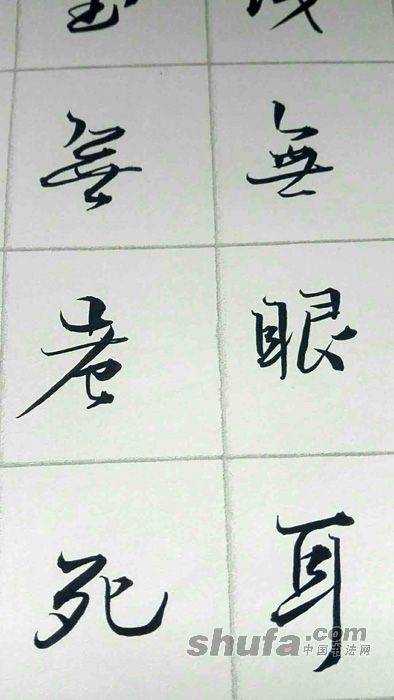 無眼耳
無老死
shufa.com
中国书法网